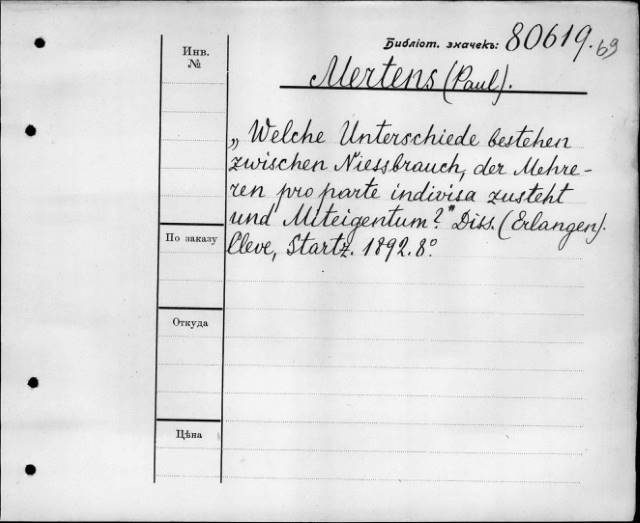 Библіот. значекъ: 80619.69
Инв.
№
Mertens (Paul).
„Welche Unterschiede bestehen
zwischen Niessbrauch, der Mehre-
ren pro parte indivisa zusteht
und Miteigentum?" Diss. (Erlangen).
Cleve, Startz. 1892. 8°.
По заказу
Откуда
Цѣна